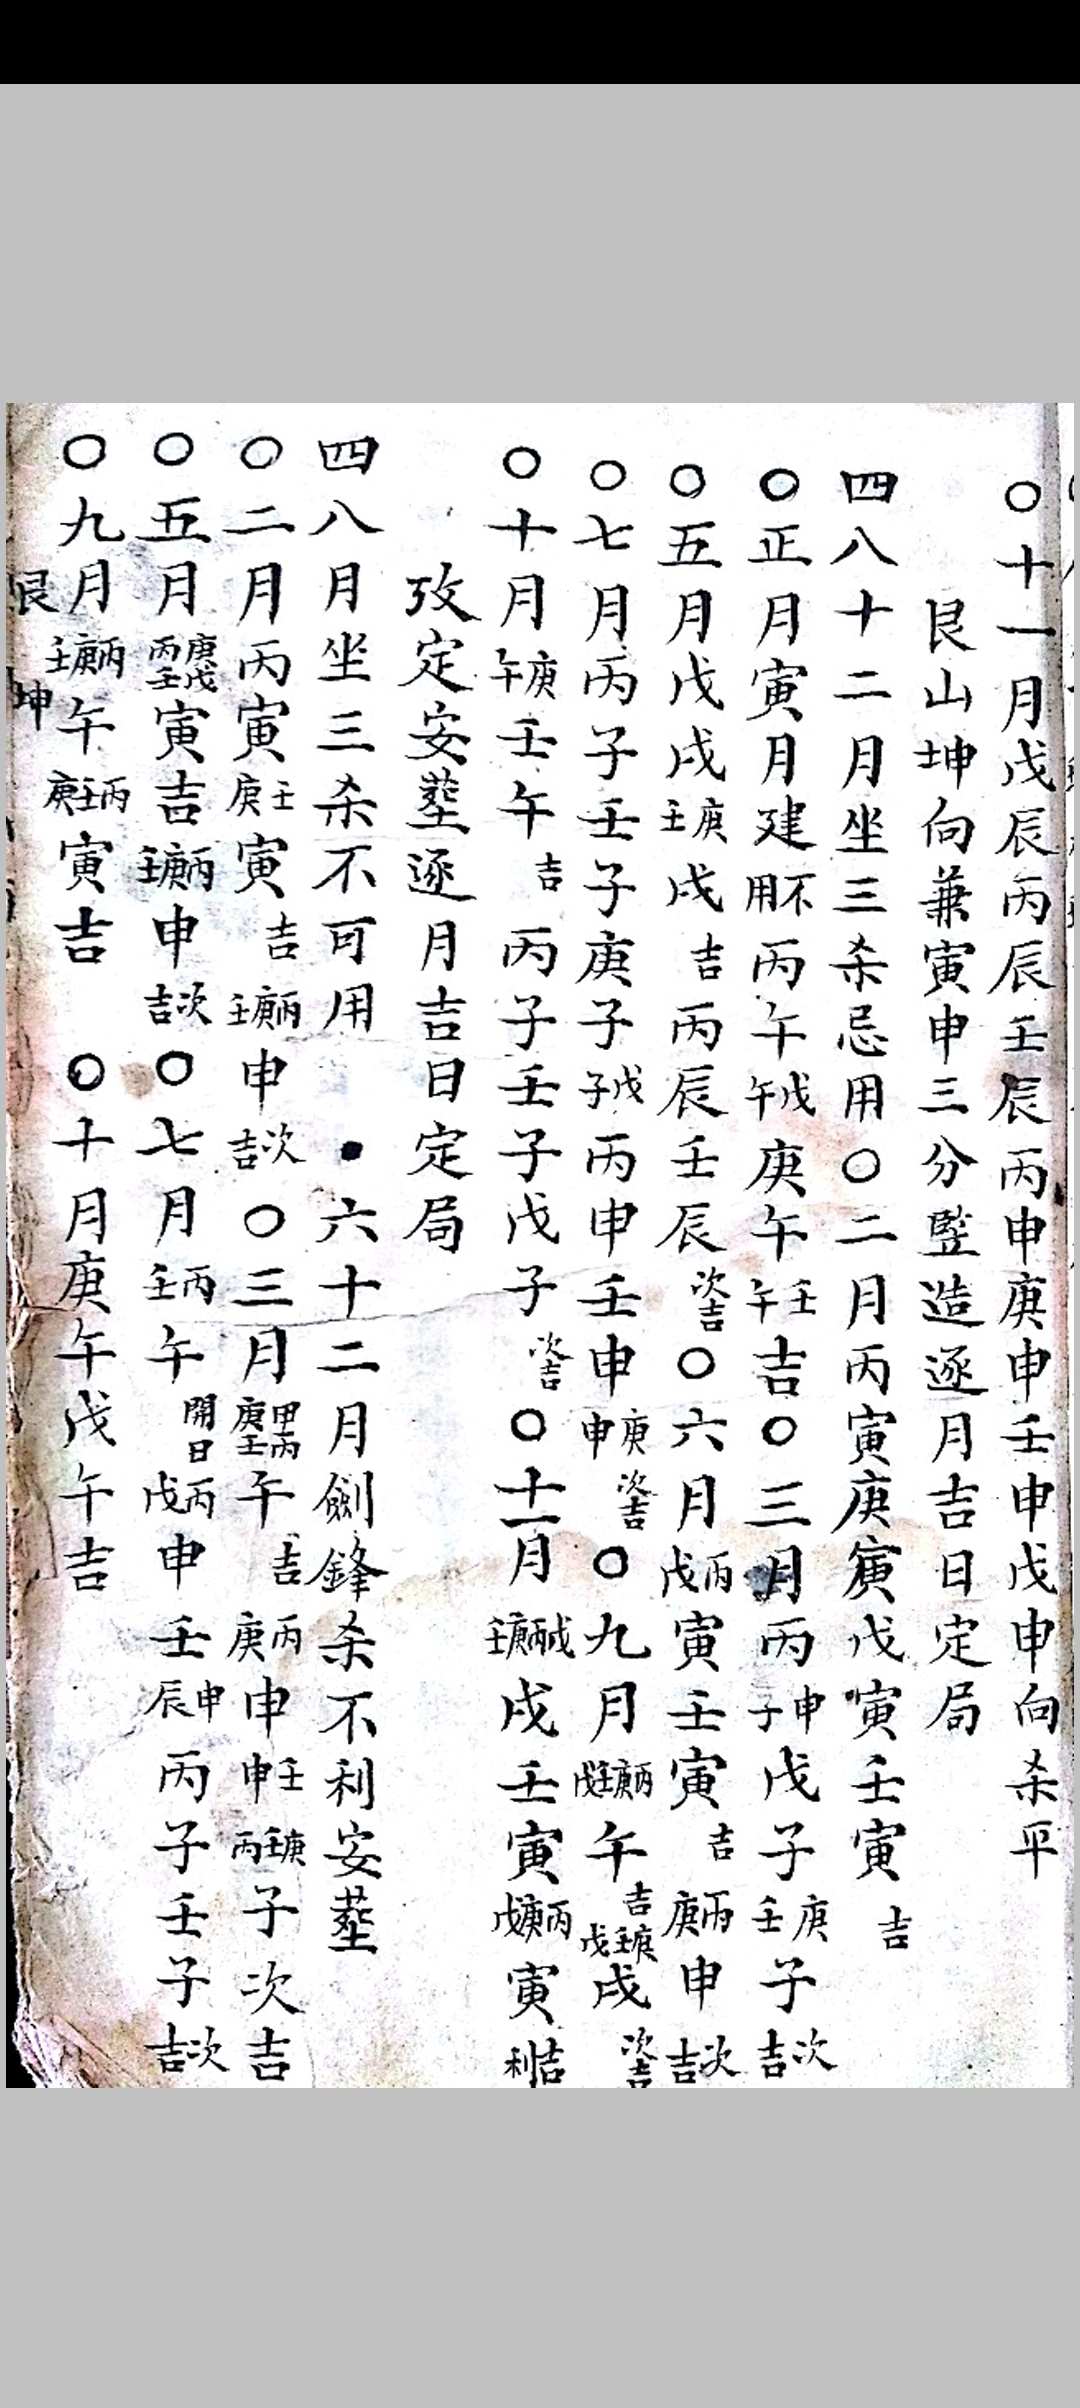 ○十一月戊辰丙辰壬辰丙申庚申壬申戊申向杀平
艮山坤向兼寅申三分竪造逐月吉日定局
四八十二月坐三杀忌用○二月丙寅庚寅戊寅壬寅吉
○正月寅月建不用丙午戊午庚午壬午吉○三月丙申子戊子庚壬子次吉
○五月戊戌庚壬戌吉丙辰壬辰次吉○六月丙戊寅壬寅吉丙庚申次吉
○七月丙子壬子庚子戊子丙申壬申庚申次吉○九月丙庚壬戊午吉庚壬戊戌次吉
○十月庚午壬午吉丙子壬子戊子次吉○十一月戊丙庚壬戌壬寅丙庚戊寅吉利
攷定安塟逐月吉日定局
四八月坐三杀不可用·六十二月劍鋒杀不利安塟
○二月丙寅壬庚寅吉丙庚壬申次吉○三月甲丙庚壬午吉丙庚申壬申庚壬丙子次吉
○五月庚戊丙壬寅吉丙庚壬申次吉○七月丙壬午開日丙戊申壬申辰丙子壬子次吉
○九月丙庚壬午丙壬庚寅吉○十月庚午戊午吉
艮坤